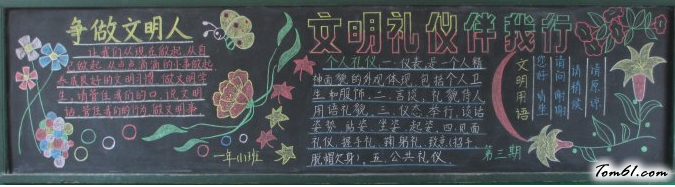 争做文明人
让我们从现在做起,从自
己做起,从点点滴滴的小事做起
养成良好的文明习惯,做文明学
生,请管住我们的口,说文明
话,管住我们的行为,做文明事
一年(1)班
文明礼仪伴我行
个人礼仪:一、仪表:是一个人精
神面貌的外观体现,包括个人卫
生和服饰。二、言谈:礼貌待人
用语礼貌。三、仪态:举行,谈话
姿势,站姿,坐姿,起姿。四、见面
礼仪:握手礼,鞠躬礼,致意(招手
脱帽欠身)。五、公共礼仪。
第三期
文明用语
您好 请坐
请问 谢谢
请稍候
请原谅
Tom61.com